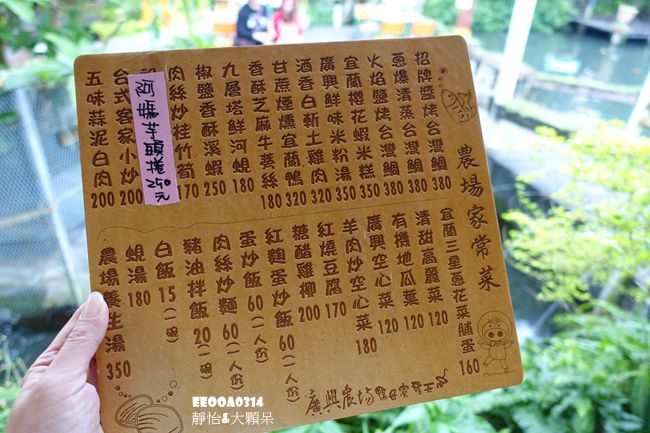 農場家常菜
招牌鹽烤台灣鯛 380
蔥爆清蒸台灣鯛 380
火焰鹽烤台灣鯛 380
宜蘭櫻花蝦米糕 350
廣興鮮味米粉湯 350
酒香白斬土雞肉 320
甘蔗煙燻宜蘭鴨 320
香酥芝麻牛蒡絲 180
九層塔鮮河蜆 180
椒鹽香酥溪蝦 250
肉絲炒桂竹筍 170
阿嬤芋頭捲 250元
台式客家小炒 200
五味蒜泥白肉 200
宜蘭三星蔥花菜脯蛋 160
清甜高麗菜 120
有機地瓜葉 120
廣興空心菜 120
羊肉炒空心菜 180
紅燒豆腐 170
糖醋雞柳 200
紅麴蛋炒飯 60(一人份)
蛋炒飯 60(一人份)
肉絲炒麵 60(一人份)
豬油拌飯 20(一碗)
白飯 15(一碗)
蜆湯 180
農場養生湯 350
廣興農場
EEOOA0314
靜怡&大顆呆